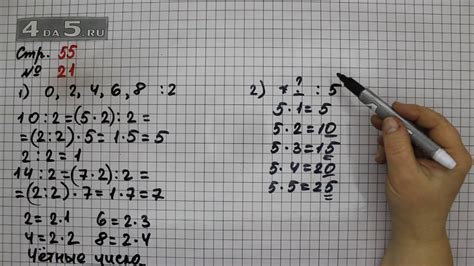 4 ДА 5.RU
Стр. 55
№ 21
1) 0, 2, 4, 6, 8 :2
10:2=(5·2):2=
=(2:2)·5=1·5=5
2:2=1
14:2=(7·2):2=
=(2:2)·7=1·7=7
2=2·1 6=2·3
4=2·2 8=2·4
Чётные число
2) * ? :5
5·1=5
5·2=10
5·3=15
5·4=20
5·5=25